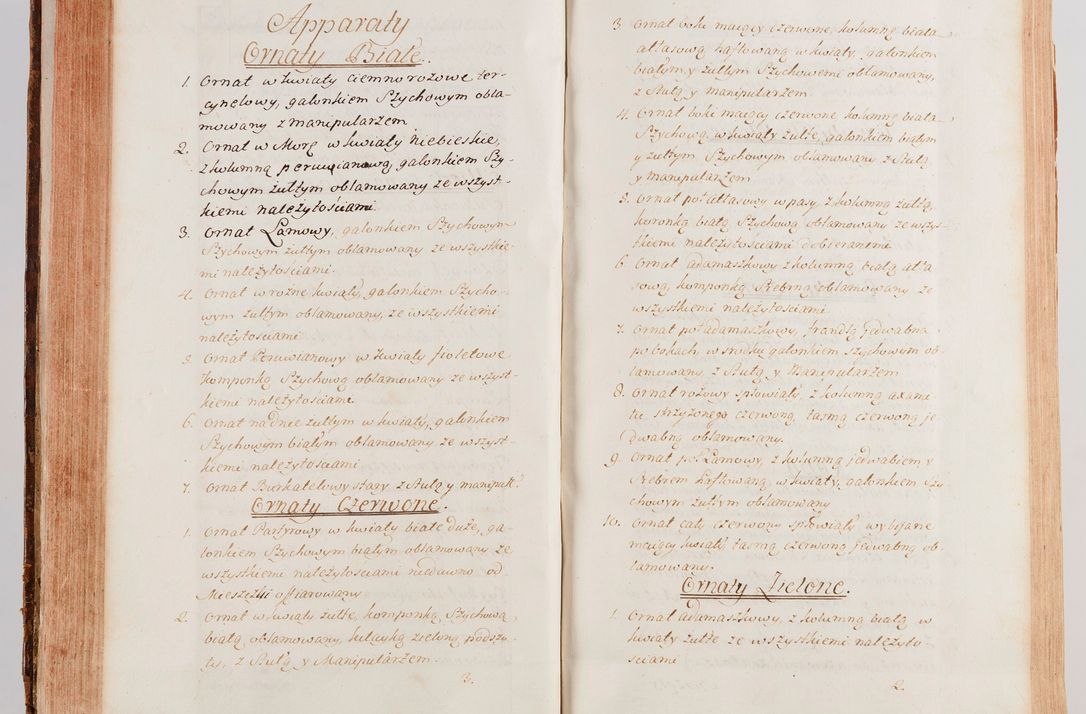 Apparaty
Ornaty Białe.
1. Ornat w kwiaty ciemno rożowe ter-
cynelowy, galonkiem Szychowym obla-
mowany z manipularzem
2. Ornat w Morę w kwiaty niebieskie,
z kolumną peruwianową, galonkiem Szy-
chowym żułtym oblamowany ze wszyst-
kiemi należytościami.
3. Ornat Lamowy, galonkiem Szychowym
Szychowym żułtym oblamowany ze wszystkie-
mi należytościami.
4. Ornat w rożne kwiaty, galonkiem Szycho-
wym żułtym oblamowany, ze wszystkiemi
należytościami
5. Ornat Peruwianowy w kwiaty fioletowe
komponką Szychową oblamowany ze wszyst-
kiemi należytościami
6. Ornat na dnie żułtym w kwiaty, galonkiem
Szychowym białym oblamowany ze wszyst-
kiemi należytościami
7. Ornat Burkatelowy stary z Stułą y manipułł.
Ornaty Czerwone.
1. Ornat Partyrowy w kwiaty białe duże, ga-
lonkiem Szychowym białym oblamowany ze
wszystkiemi należytościami niedawno od
Mieszczki offiarowany
2. Ornat w kwiaty żułte, komponką Szychową
białą, oblamowany, kitayką zieloną podszy-
ty, z Stułą y Manipularzem.
3.
3. Ornat boki maiący czerwone, kolumnę białą
atłasową haftowaną w kwiaty, galonkiem
białym y żułtym Szychowemi oblamowany,
z Stułą y manipularzem
4. Ornat boki maiący czerwone kolumnę białą
Szychową, w kwiaty żułte, galonkiem białym
y żułtym Szychowym oblamowany z Stułą
y manipularzem
5. Ornat pół atłasowy w pasy, z kolumną żułtą,
koronką białą Szychową oblamowany ze wszy-
stkiemi należytościami dobieranemi
6. Ornat adamaszkowy z kolumną białą atła
sową, komponką Srebrną oblamowany ze
wszystkiemi należytościami
7. Ornat pół adamaszkowy, frandlą jedwabną
po bokach, w srodku galonkiem szychowym ob-
lamowany, z Stułą y Manipularzem
8. Ornat rożowy spłowiały, z kolumną axami-
tu strzyżonego czerwoną, tasmą czerwoną je
dwabną oblamowany.
9. Ornat pół Lamowy, z kolumną jedwabiem y
Srebrem haftowaną, w kwiaty, galonkiem Szy
chowym żułtym oblamowany
10. Ornat cały czerwony spłowiały wybijane
maiący kwiaty, tasmą czerwoną jedwabną ob-
lamowany.
Ornaty Zielone.
1. Ornat adamaszkowy, z kolumną białą w
kwiaty żułte ze wszystkiemi należyto
sciami
2.